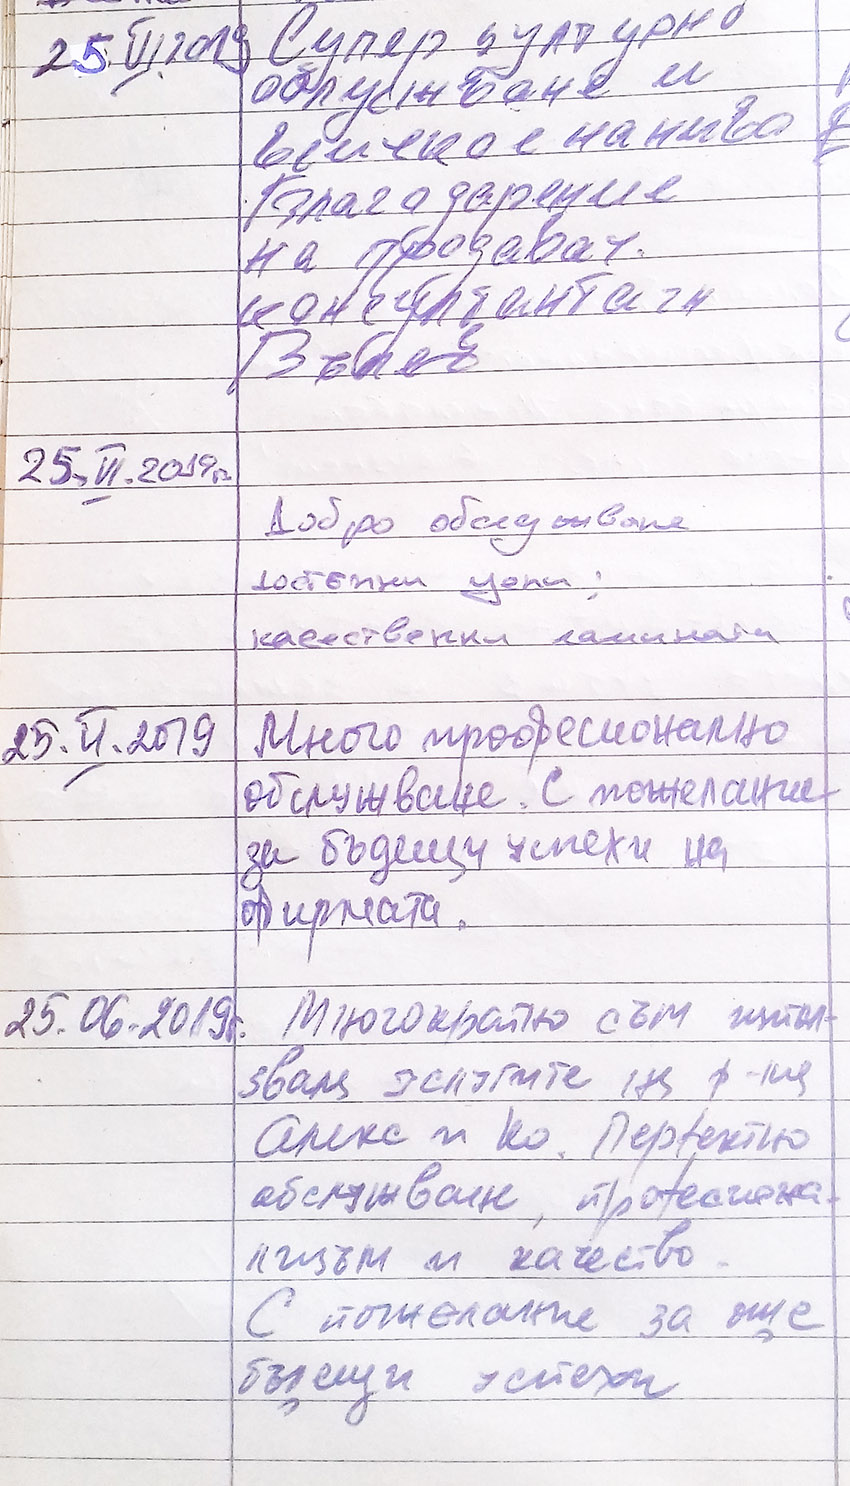 25.VI.2019 Супер културно
обслужване и
всичко е на ниво
Благодарение
на продавач.
консултантаи
25.VI.2019г.
Добро обслужване
достъпни цени;
качествени ламинати
25.VI.2019 Много професионално
обслужване. С пожелание
за бъдещи успехи на
фирмата.
25.06.2019г. Многократно съм изпол-
звал услугите на ф-ма
Алекс и Ко. Перфектно
обслужване, професиона-
лизъм и качество.
С пожелание за още
бъдещи успехи